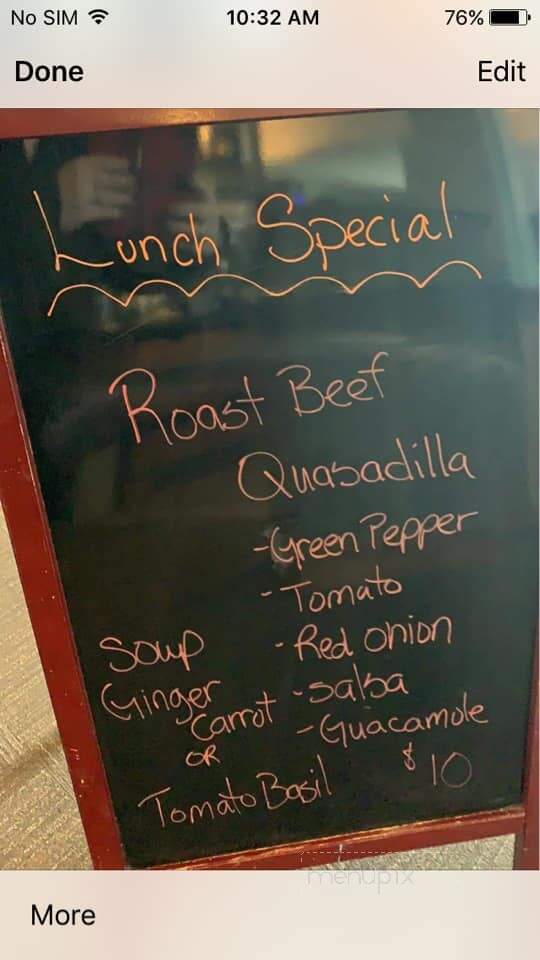 No SIM 10:32 AM 76%
Done Edit
Lunch Special
Roast Beef
Quasadilla
-Green Pepper
-Tomato
-Red onion
-salsa
-Guacamole
$10
Soup
Ginger
Carrot
OR
Tomato Basil
menupix
More